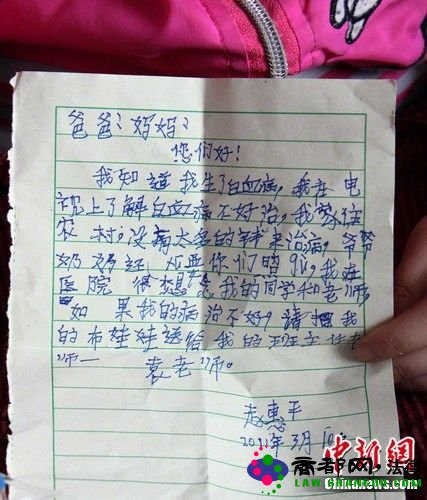 爸爸:妈妈:
您们好!
我知道我生了白血病,我在电
视上了解白血病不好治,我家住
农村,没有太多的钱来治病,爷爷
奶奶还需要你们照顾,我在
医院很想念我的同学和老师,
如果我的病治不好,请把我
的布娃娃送给我的班主任老
师——袁老师。
赵惠平
2011年3月10
中新网
Chinanews.com
商都网,法律
LAW.SHANGDU.COM